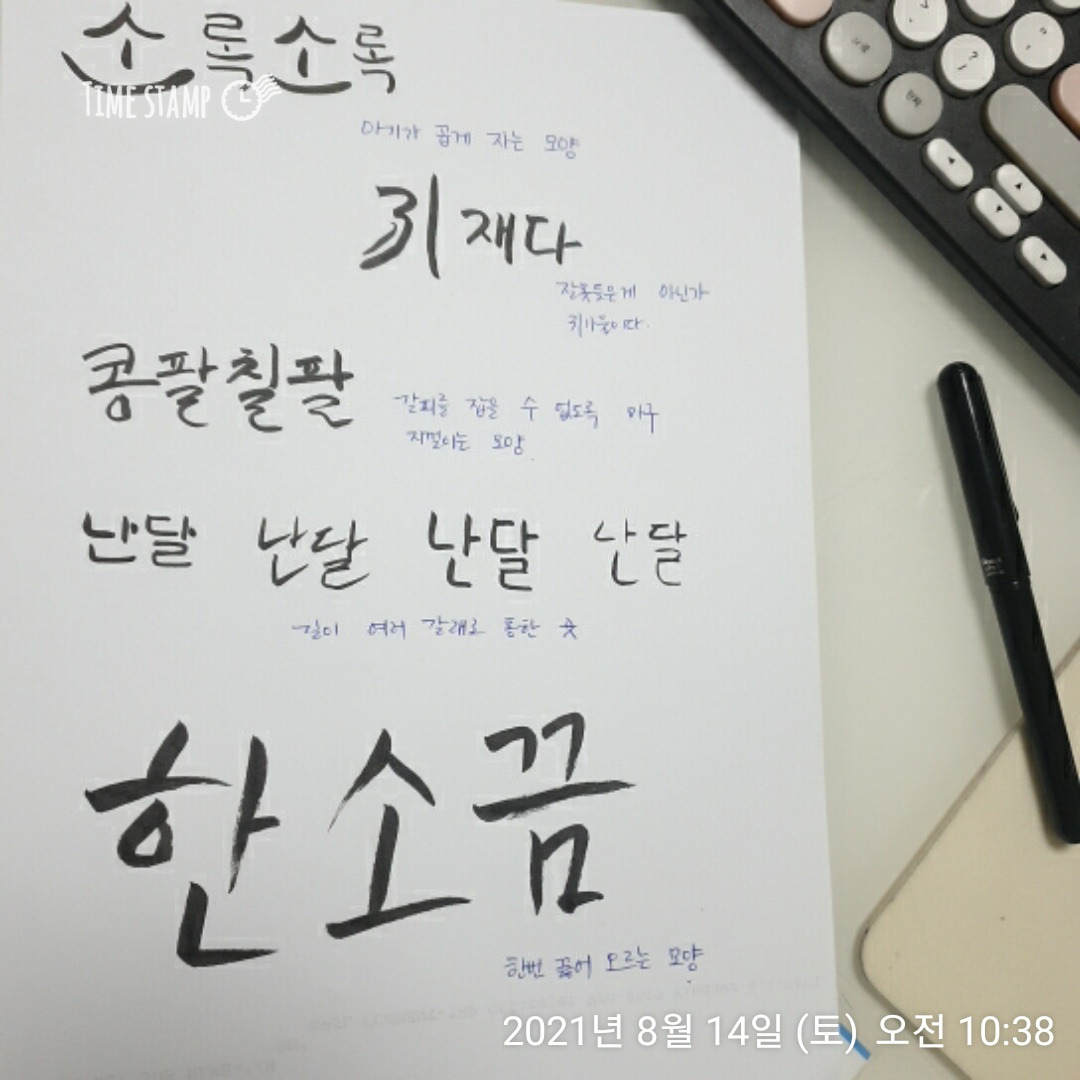 소록소록
TIME STAMP
아기가 곱게 자는 모양
귀재다
잘못들은게 아닌가
귀기울이다.
콩팔칠팔
갈피를 잡을 수 없도록 마구
지껄이는 모양.
난달 난달 난달 난달
길이 여러 갈래로 통한 곳
한소끔
한번 끓어 오르는 모양
2021년 8월 14일 (토) 오전 10:38